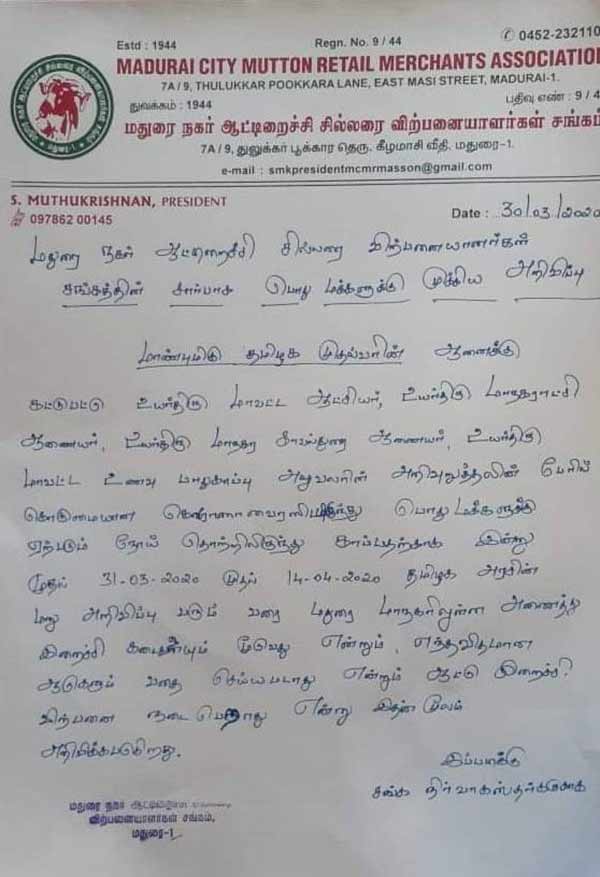 Estd : 1944 Regn. No. 9 / 44 0452-232110
MADURAI CITY MUTTON RETAIL MERCHANTS ASSOCIATION
7A / 9, THULUKKAR POOKKARA LANE, EAST MASI STREET, MADURAI-1.
துவக்கம் : 1944 பதிவு எண் : 9 / 4
மதுரை நகர் ஆட்டிறைச்சி சில்லரை விற்பனையாளர்கள் சங்கம்
7A / 9, துலுக்கர் பூக்கார தெரு, கீழமாசி வீதி, மதுரை-1.
e-mail : smkpresidentmcmrmasson@gmail.com
S. MUTHUKRISHNAN, PRESIDENT
097862 00145
Date : 30/03/2020
மதுரை நகர் ஆட்டிறைச்சி சில்லரை விற்பனையாளர்கள்
சங்கத்தின் சார்பாக பொது மக்களுக்கு முக்கிய அறிவிப்பு
மாண்புமிகு தமிழக முதல்வரின் ஆணைக்கு
கட்டுபட்டு உயர்திரு மாவட்ட ஆட்சியர், உயர்திரு மாநகராட்சி
ஆணையர், உயர்திரு மாநகர காவல்துறை ஆணையர், உயர்திரு
மாவட்ட உணவு பாதுகாப்பு அலுவலரின் அறிவுறுத்தலின் பேரில்
கொடுமையான கொரோனா வைரஸிலிருந்து பொது மக்களுக்கு
ஏற்படும் நோய் தொற்றிலிருந்து காப்பதற்காக இன்று
முதல் 31-03-2020 முதல் 14-04-2020 தமிழக அரசின்
மறு அறிவிப்பு வரும் வரை மதுரை மாநகரிலுள்ள அனைத்து
இறைச்சி கடைகளையும் மூடுவது என்றும், எந்தவிதமான
ஆடுகளும் வதை செய்யபடாது என்றும் ஆட்டு இறைச்சி
விற்பனை நடைபெறாது என்று இதன் மூலம்
அறிவிக்கபடுகிறது.
இப்படிக்கு
சங்க நிர்வாகஸ்தர்களுக்காக
மதுரை நகர் ஆட்டிறைச்சி சில்லரை
விற்பனையாளர்கள் சங்கம்,
மதுரை-1